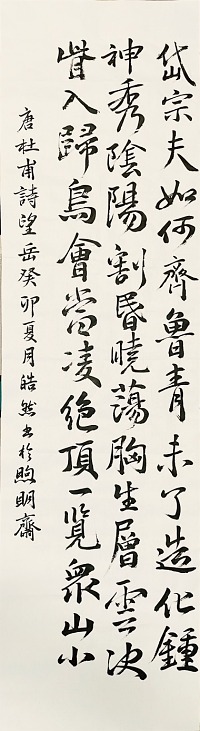 岱宗夫如何齊魯青未了造化鍾
神秀陰陽割昏曉蕩胸生層雲決
眥入歸鳥會當凌絕頂一覽衆山小
唐杜甫詩望岳癸卯夏月皓然书於煦明齋